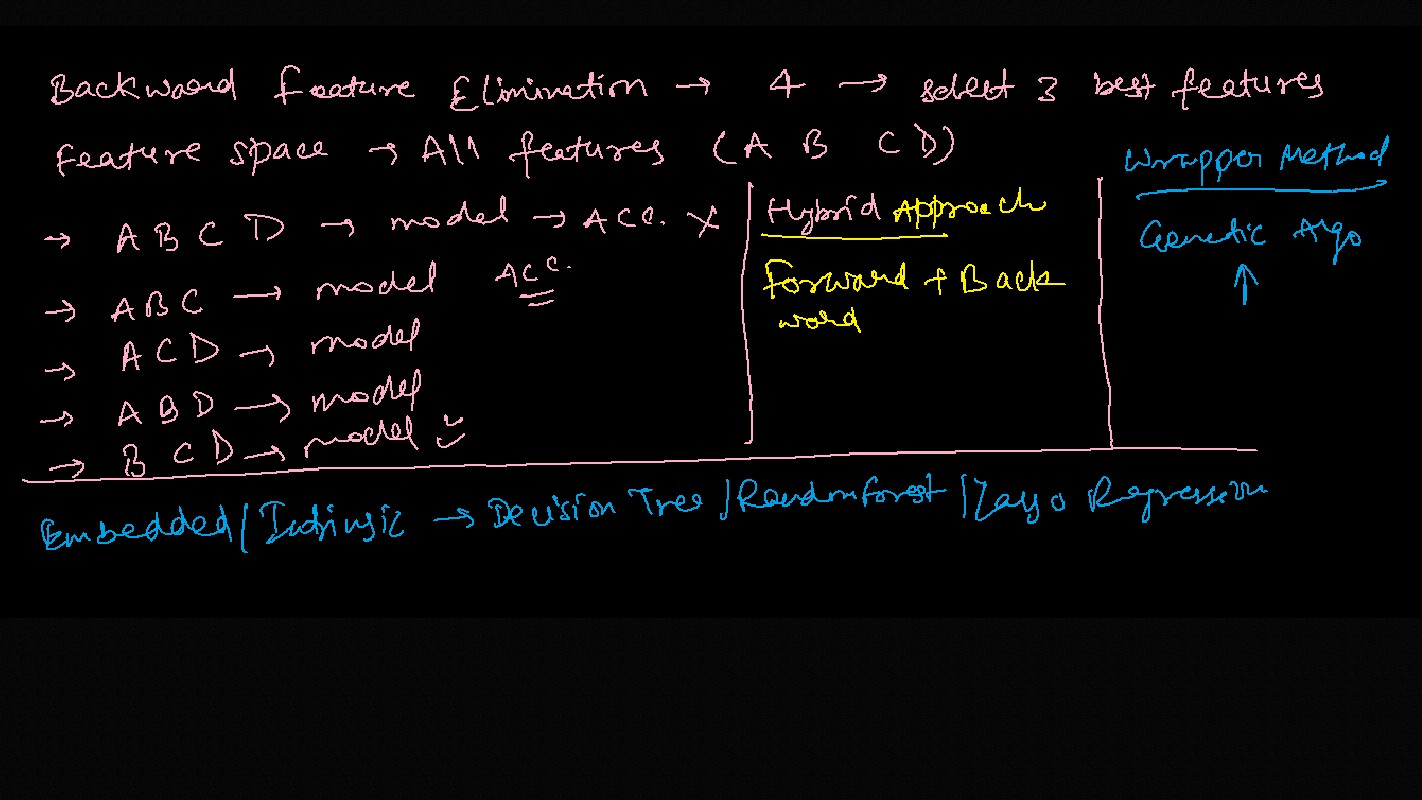 Backward feature Elimination → 4 → select 3 best features
Feature space → All features (A B C D)
→ A B C D → model → Acc. X
→ ABC → model Acc.
→ A C D → model
→ A B D → model
→ B C D → model
Hybrid Approach
Forward + Back
ward
Wrapper Method
Genetic Algo
↑
Embedded / Intrinsic → Decision Tree / Random forest / Lasso Regression